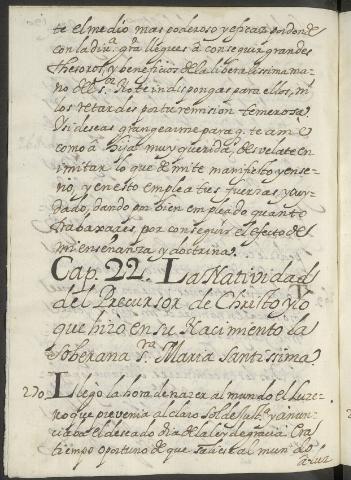 te el medio mas poderoso y eficaz por donde
con la div.ª gr.ª llegues a conseguir grandes
thesoros, y beneficios de la liberalissima ma-
no del S.r No te indispongas para ellos, ni
los retardes por tu remision temerosa
Y si deseas grangearme para q. te ame
como a hija muy querida, desvelate en
imitar lo que de mi te manifiesto y ense-
ño, y en esto emplea tus fuerzas y cuy-
dado, dando por bien empleado quanto
trabaxares, por conseguir el efecto de
mi enseñanza y doctrina.
Cap. 22. La Natividad
del Precursor de Christo y lo
que hizo en su Nacimiento la
Soberana S.ra Maria Santissima.
270 Llego la hora de nazer al mundo el Luze-
ro que prevenia al claro Sol de Just.ª y anun-
ciaba el deseado dia de la ley de gracia. Era
tiempo oportuno de que saliese al mundo